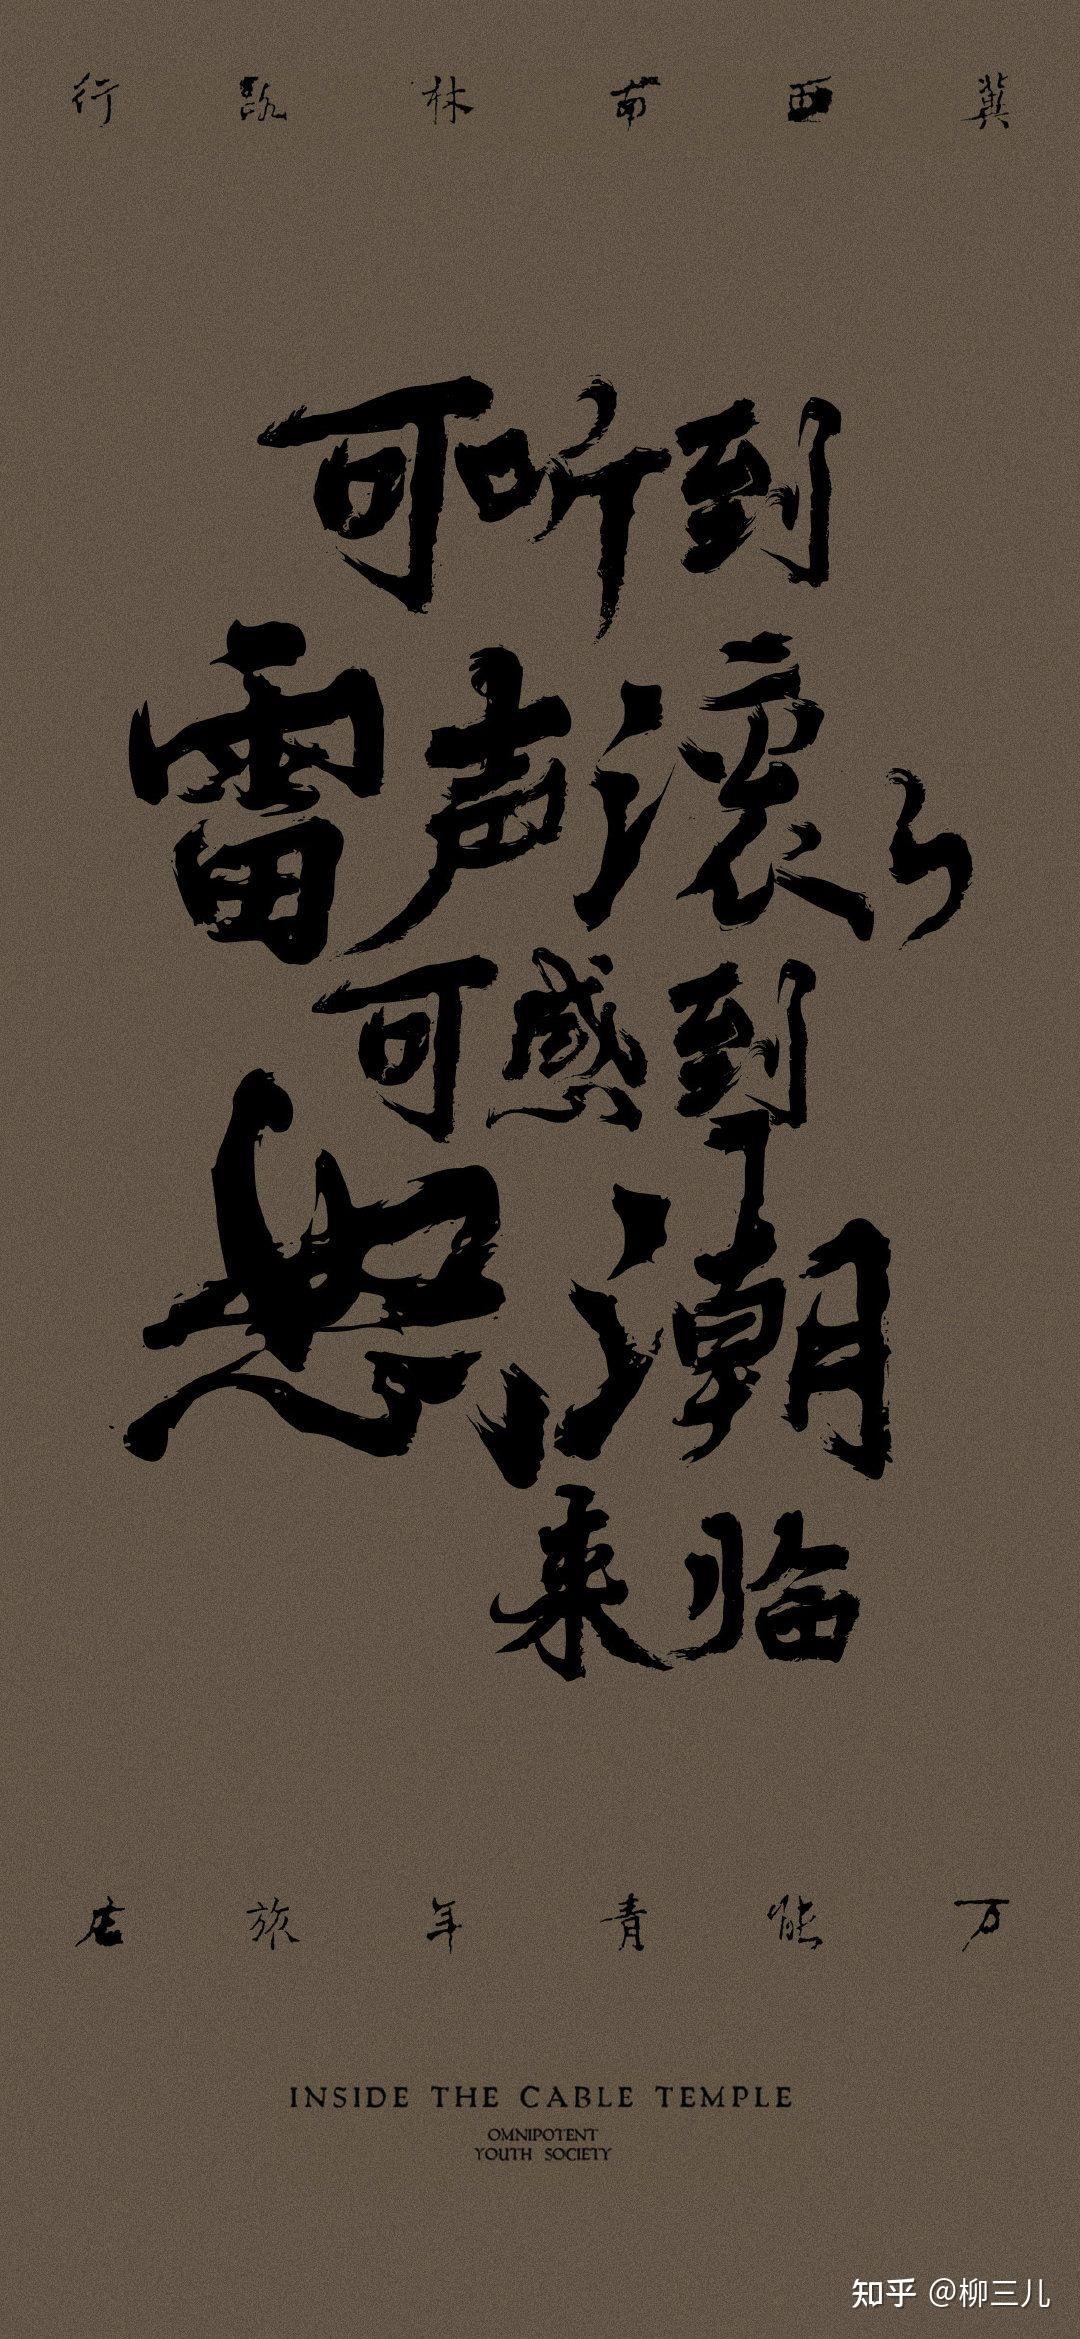 冀西南林路行
可听到
雷声滚々
可感到
怒潮
来临
万能青年旅店
INSIDE THE CABLE TEMPLE
OMNIPOTENT
YOUTH SOCIETY
知乎 @柳三儿